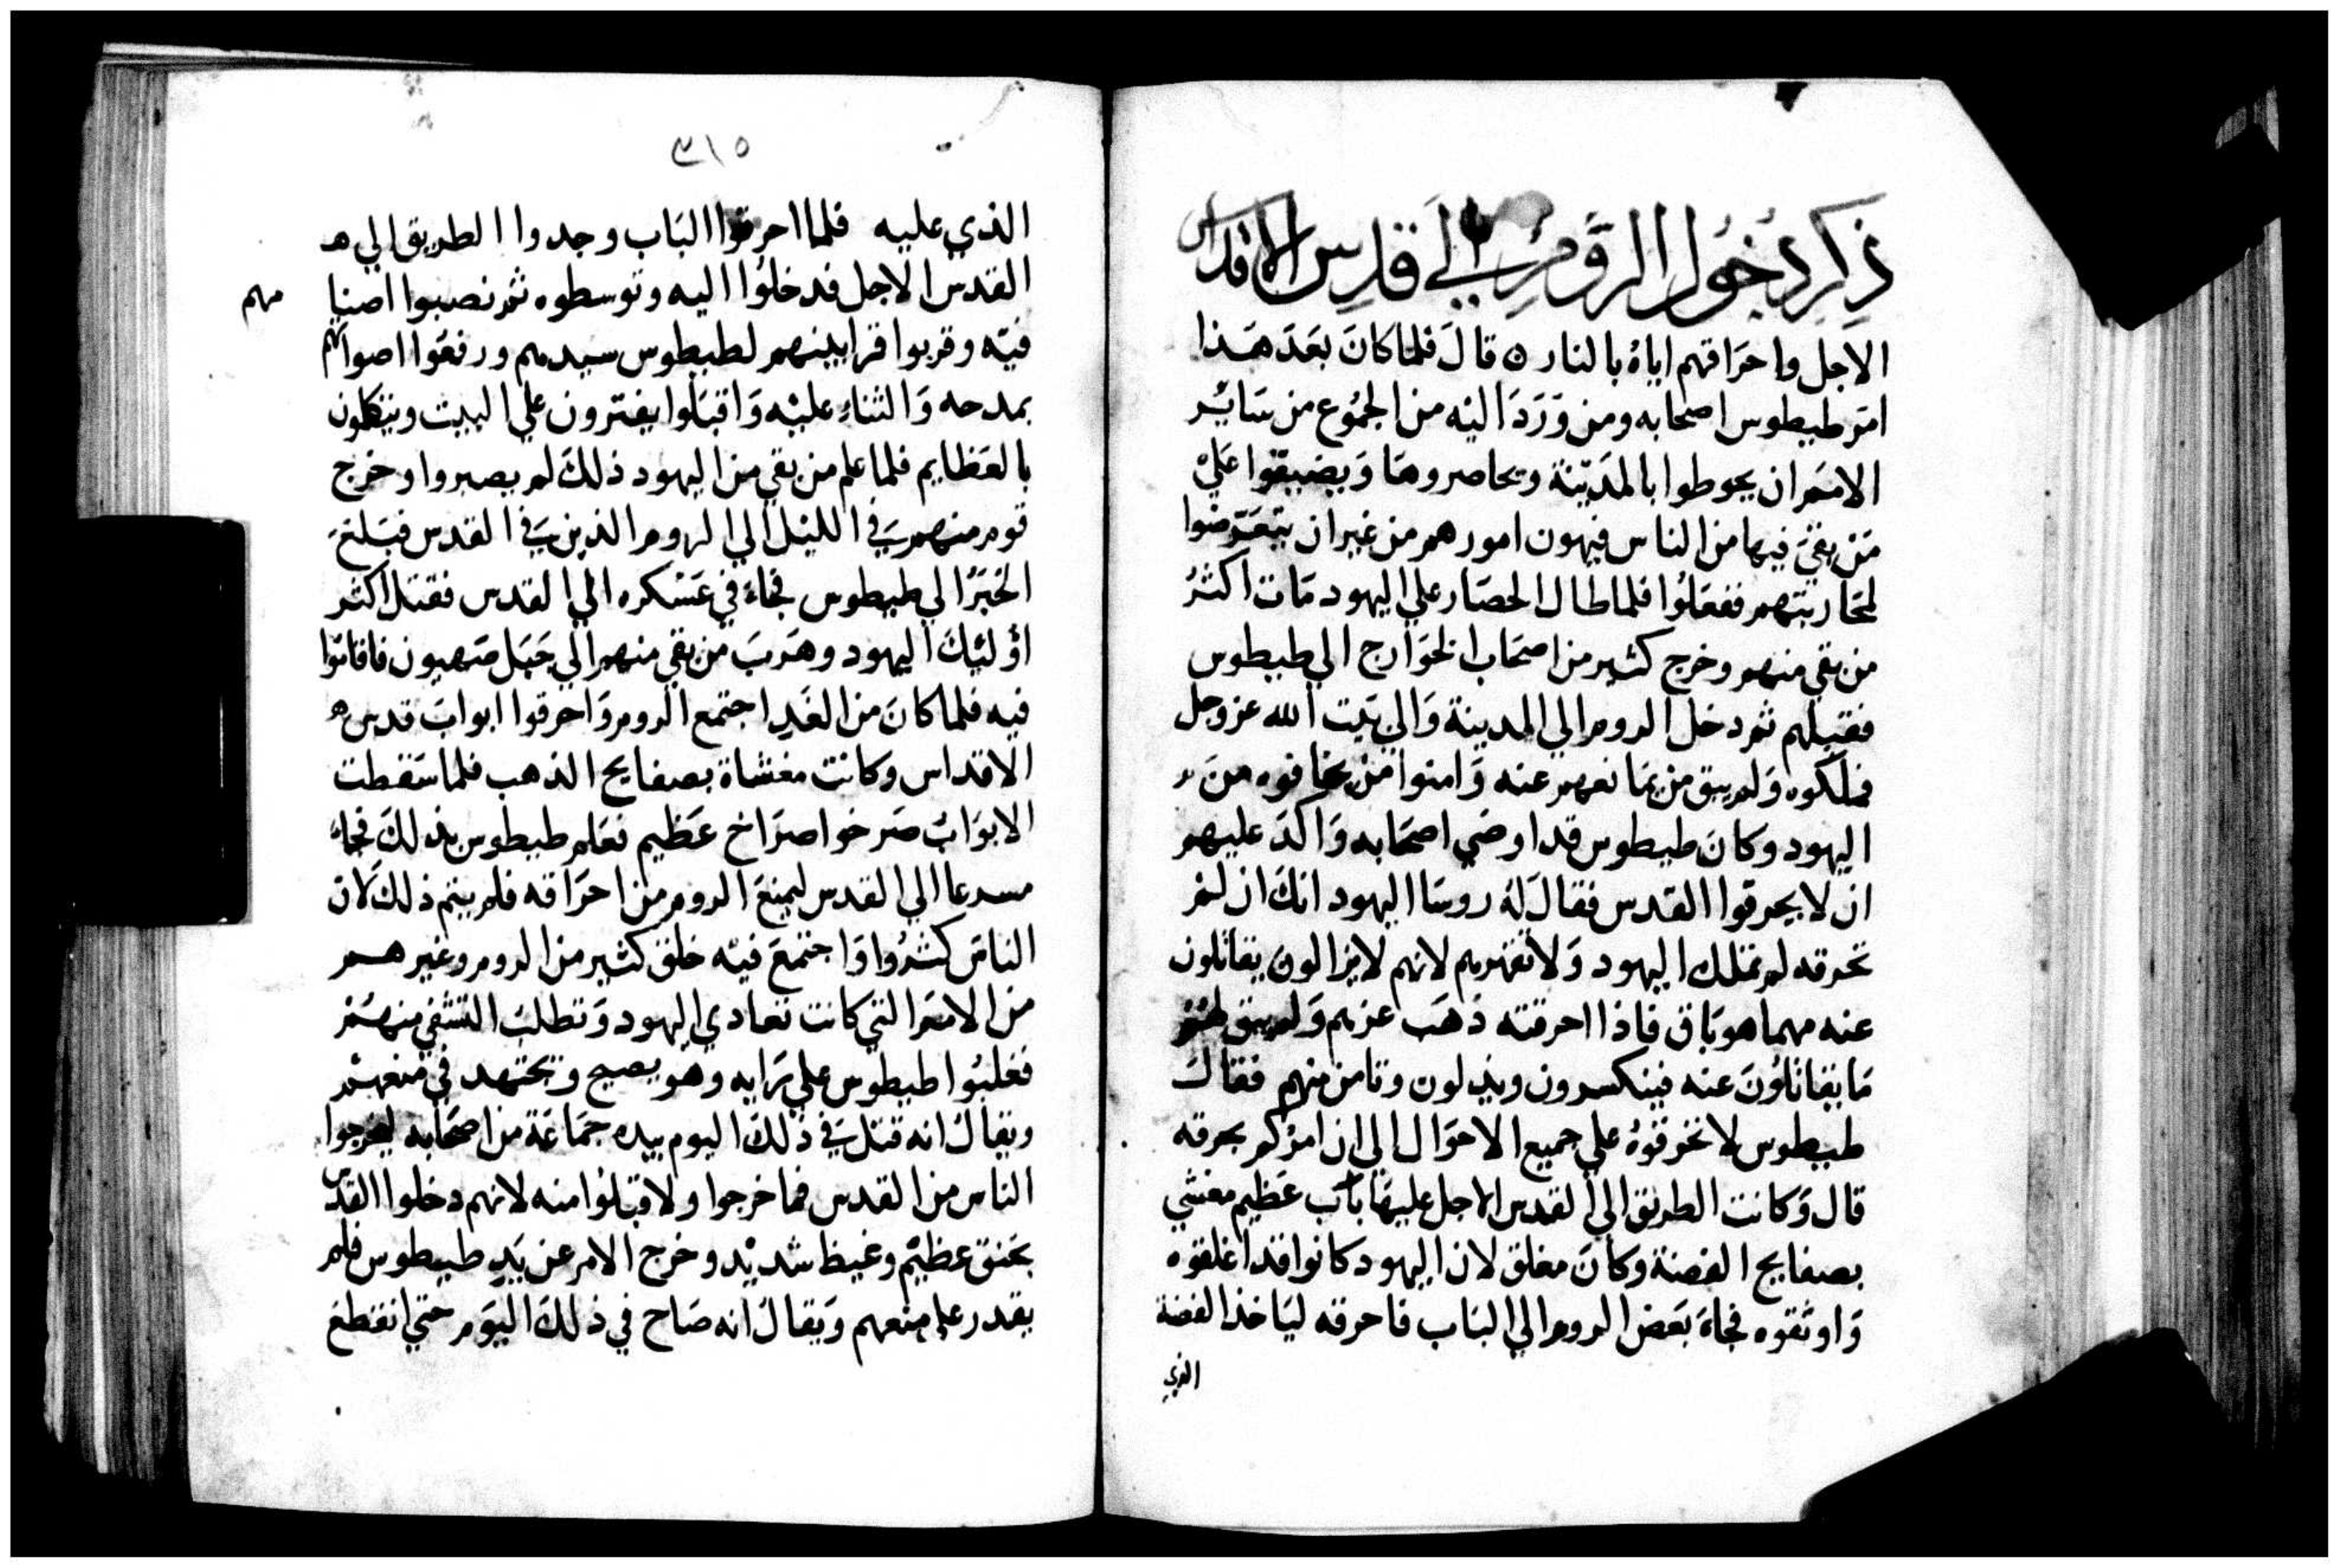 ذِكر دُخُول الرُّوم الي قدس الاقداس
الاجل واحراقهم اياهُ بالنار ۞ قالَ فلما كانَ بعَدَ هَذا
امَر طيطوس اصحابه ومن وَرَدَ اليْه من الجمُوع من سَايُر
الامَم ان يحوطوا بالمَديْنة ويحاصروهَا وَيضيقوا عَليْ
مَن بقيَ فيها من الناس فيهون امورهم من غير ان يتعَرّضوا
لمحَاربتهم ففعَلُوا فلما طال الحصَار علي اليهود مَات اكثرُ
من بقي منهم وخرج كثير من اصحَاب الخوَارج الي طيطوس
فقبلهم ثم دخل الروم الي المدينة وَالي بَيت الله عز وجل
فملكوه وَلم يبق من يمَانعهم عنه وَامنوا مَن يخافوه منَ
اليهود وكانَ طيطوس قد اوصَي اصحَابه وَاكدَ عليهم
ان لا يحرقوا القدس فقالَ لهُ روسَا اليهود انكَ ان لمْ
تحرقه لم تملك اليهود وَلا تقهرهم لانهم لا يزالون يقاتلون
عنه مهما هو بَاق فاذا احرقته ذهَب عزهم وَلم يبق لهُمْ
مَا يقاتلُونَ عنه فينكسرون ويذلون وتامن منهم فقالَ
طيطوس لا تحرقوهُ علي جميع الاحوَال الي ان امرْكم بحرقه
قال وَكانت الطريق الي القدس الاجل عليهَا بَاب عَظيم مغشي
بصفايح الفضة وكانَ مغلق لان اليهود كانوا قد اغلقوه
وَاوثقوه فجاءَ بعَض الروم الي البَاب فاحرقه ليَاخذ الفضة
الذي
٣١٥
الذي عليه فلما احرقوا البَاب وجدوا الطريق الي
القدس الاجل فدخلُوا اليه وتوسطوه ثم نصبوا اصنامهم
فيْه وقربوا قرابينهم لطيطوس سيدهم ورفعُوا اصواتهم
بمدحه وَالثناءِ عليْه وَاقبَلوا يفترون علي البيت ويتكلمون
بالعَظايم فلما علم من بقي من اليهود ذلكَ لم يصبروا وخرج
قوم منهم في الليْل الي الروم الذين في القدس فبَلغَ
الخبَرُ الي طيطوس فجاءَ في عَسْكره الي القدس فقتل اكثر
اوْليْكَ اليهود وهَربَ من بقي منهم الي جَبَل صَهيون فاقامُوا
فيه فلما كانَ من الغَدِ اجتمع الروم وَاحرقوا ابوابَ قدس
الاقداس وكانت مغشاة بصفايح الذهب فلما سَقطت
الابوَابْ صَرخوا صرَاخ عَظيم فعَلم طيطوس بذلكَ فجاءَ
مسرعا الي القدس ليمنعَ الروم من احرَاقه فلم يتم ذلكَ لان
الناسَ كثرُوا وَاجتمعَ فيْه خلق كثير من الروم وغيرهم
من الامَم التي كانت تعادي اليهود وَتطلبُ التشفي منهُمْ
فغلبُوا طيطوس علي رَايه وهو يصيح ويجتهد في منعهمْ
ويقالَ انه قتل في ذلكَ اليوم بيده جمَاعَة من اصحَابه ليخرجوا
الناس من القدس فما خرجوا ولا قبَلوُا منه لانهم دخلوا القدس
بحَنق عظيْم وغيظ شديْد وخرج الامر عن يَدِ طيطوس فلم
يقدر علي منعهم وَيقالَ انه صَاح في ذلكَ اليَوم حتي انقطعَ